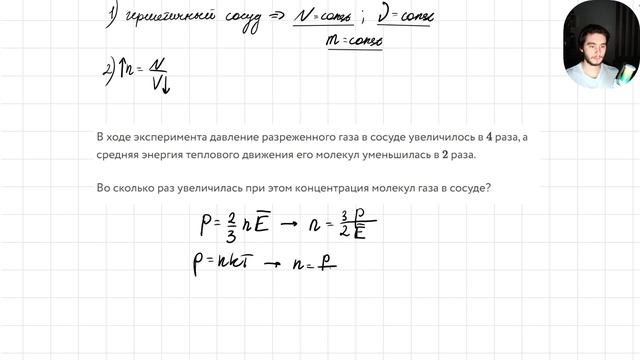 1) герметичный сосуд => N=const ; ν=const
m=const
2) ↑n = N/V↓
В ходе эксперимента давление разреженного газа в сосуде увеличилось в 4 раза, а
средняя энергия теплового движения его молекул уменьшилась в 2 раза.
Во сколько раз увеличилась при этом концентрация молекул газа в сосуде?
P = 2/3 n E̅ → n = 3/2 P/E̅
P = nkT → n = P